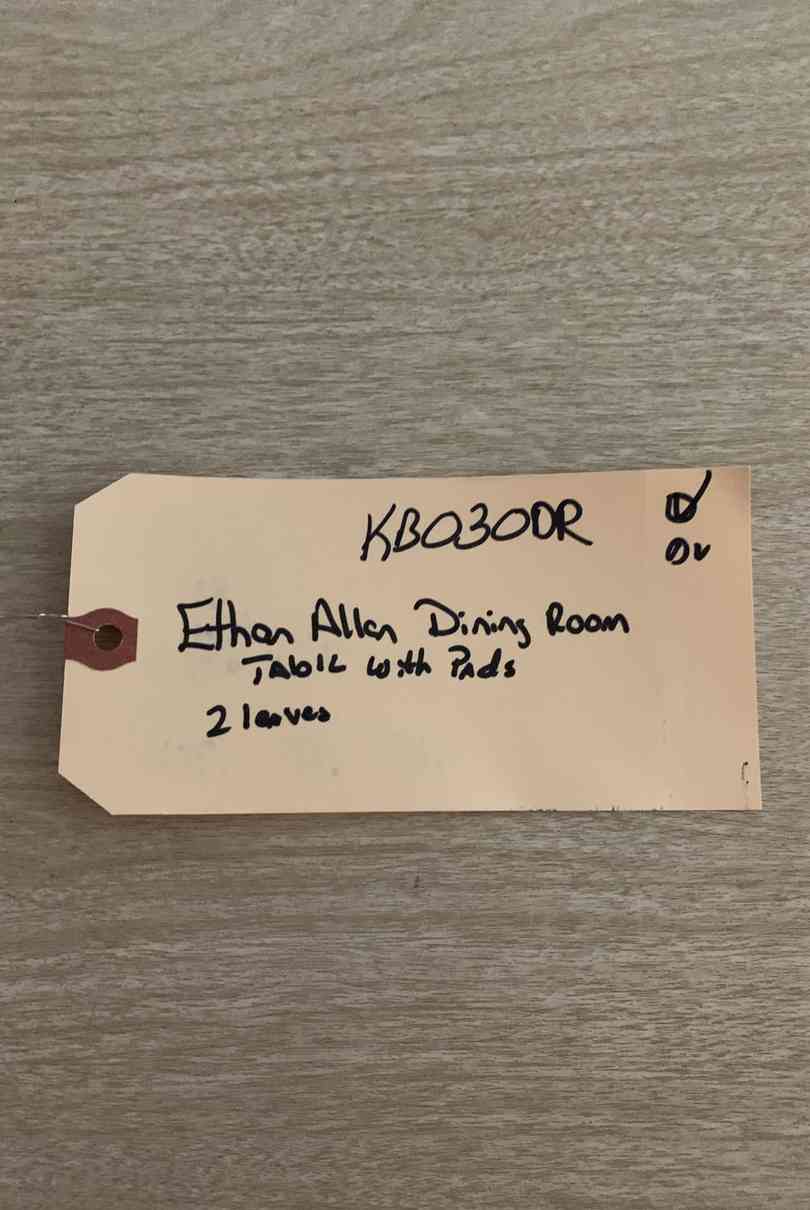 KB030DR
Ethan Allen Dining Room
Table with Pads
2 leaves